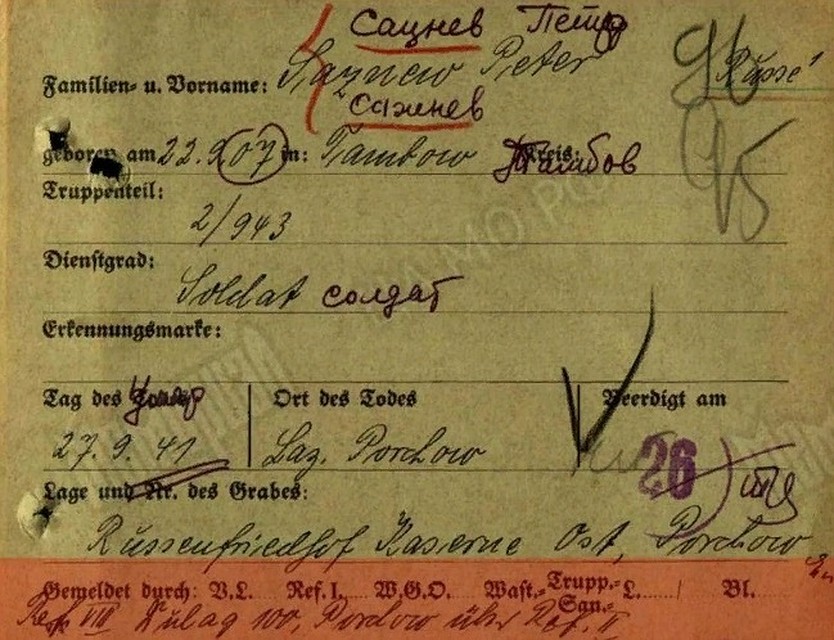 Сацнев Петр
Familien- u. Vorname: Saznew Peter Russe
Сажнев
geboren am 22.9.07 in: Tambow Kreis: Тамбов
Truppenteil:
2/943
Dienstgrad:
Soldat солдат
Erkennungsmarke:
Tag des Todes Ort des Todes Beerdigt am
27.9.41 Laz. Porchow 26
Lage und Nr. des Grabes:
Russenfriedhof Kaserne Ost, Porchow
Gemeldet durch: V.L. Ref. I. W.G.O. Wast.-Trupp.- L. / Bl.
San.-
Ref. VIII Dulag 100, Porchow über Ref. II